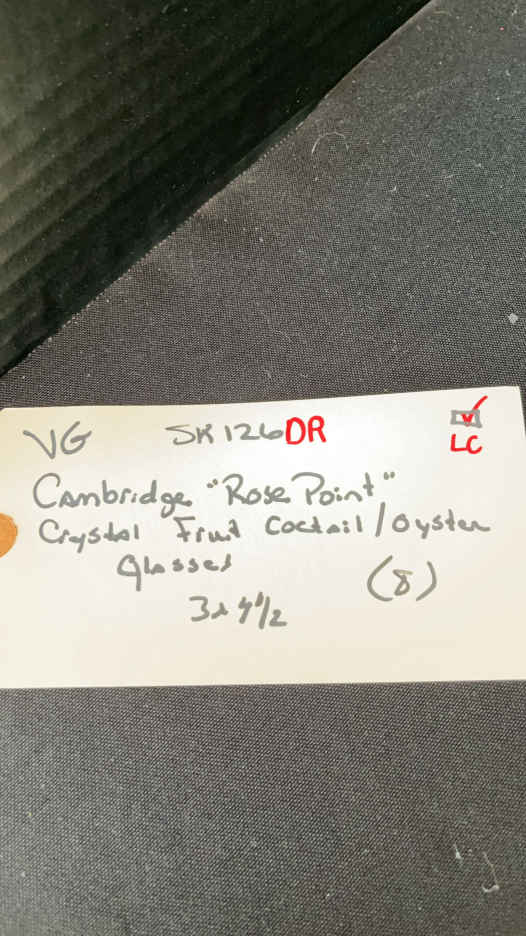 VG SK126DR
LC
Cambridge "Rose Point"
Crystal Fruit Coctail/Oyster
Glasses (8)
3x4 1/2